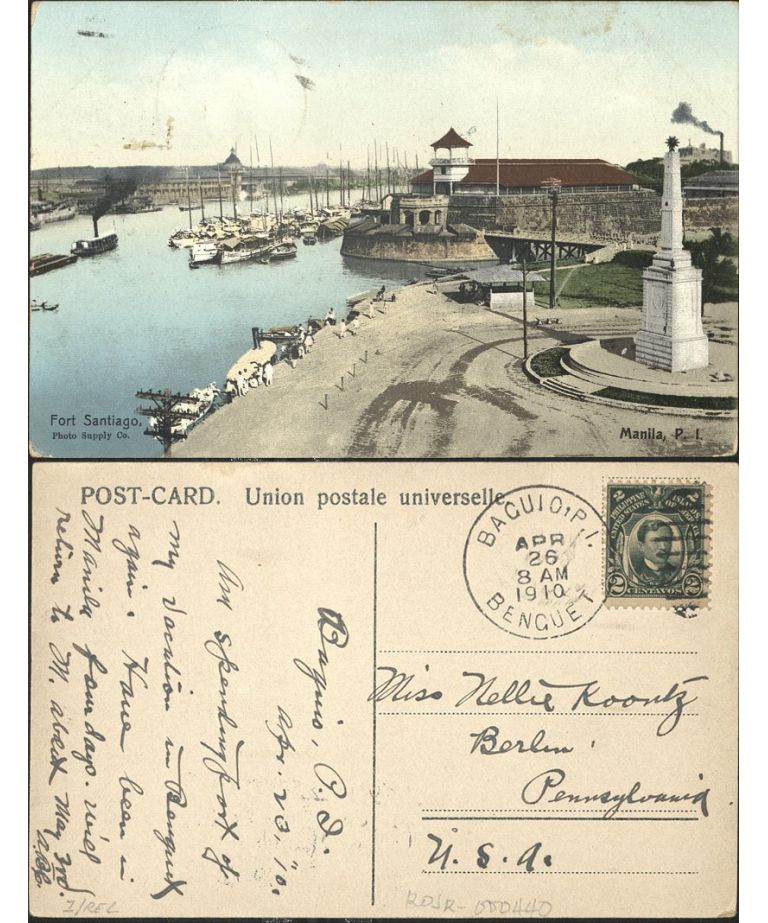 Fort Santiago,
Photo Supply Co.
Manila, P. I.
POST-CARD. Union postale universelle.
BAGUIO, P.I.
APR
26
8 AM
1910
BENGUET
2 PHILIPPINE ISLANDS 2
UNITED STATES OF AMERICA
2 CENTAVOS 2
Baguio, P. I.
Apr. 23, '10.
Am spending part of
my vacation in Benguet
again. Have been in
Manila four days. will
return to M. about May 3rd.
Miss Nellie Koontz
Berlin
Pennsylvania
U. S. A.
I/REL
ROSR-000440